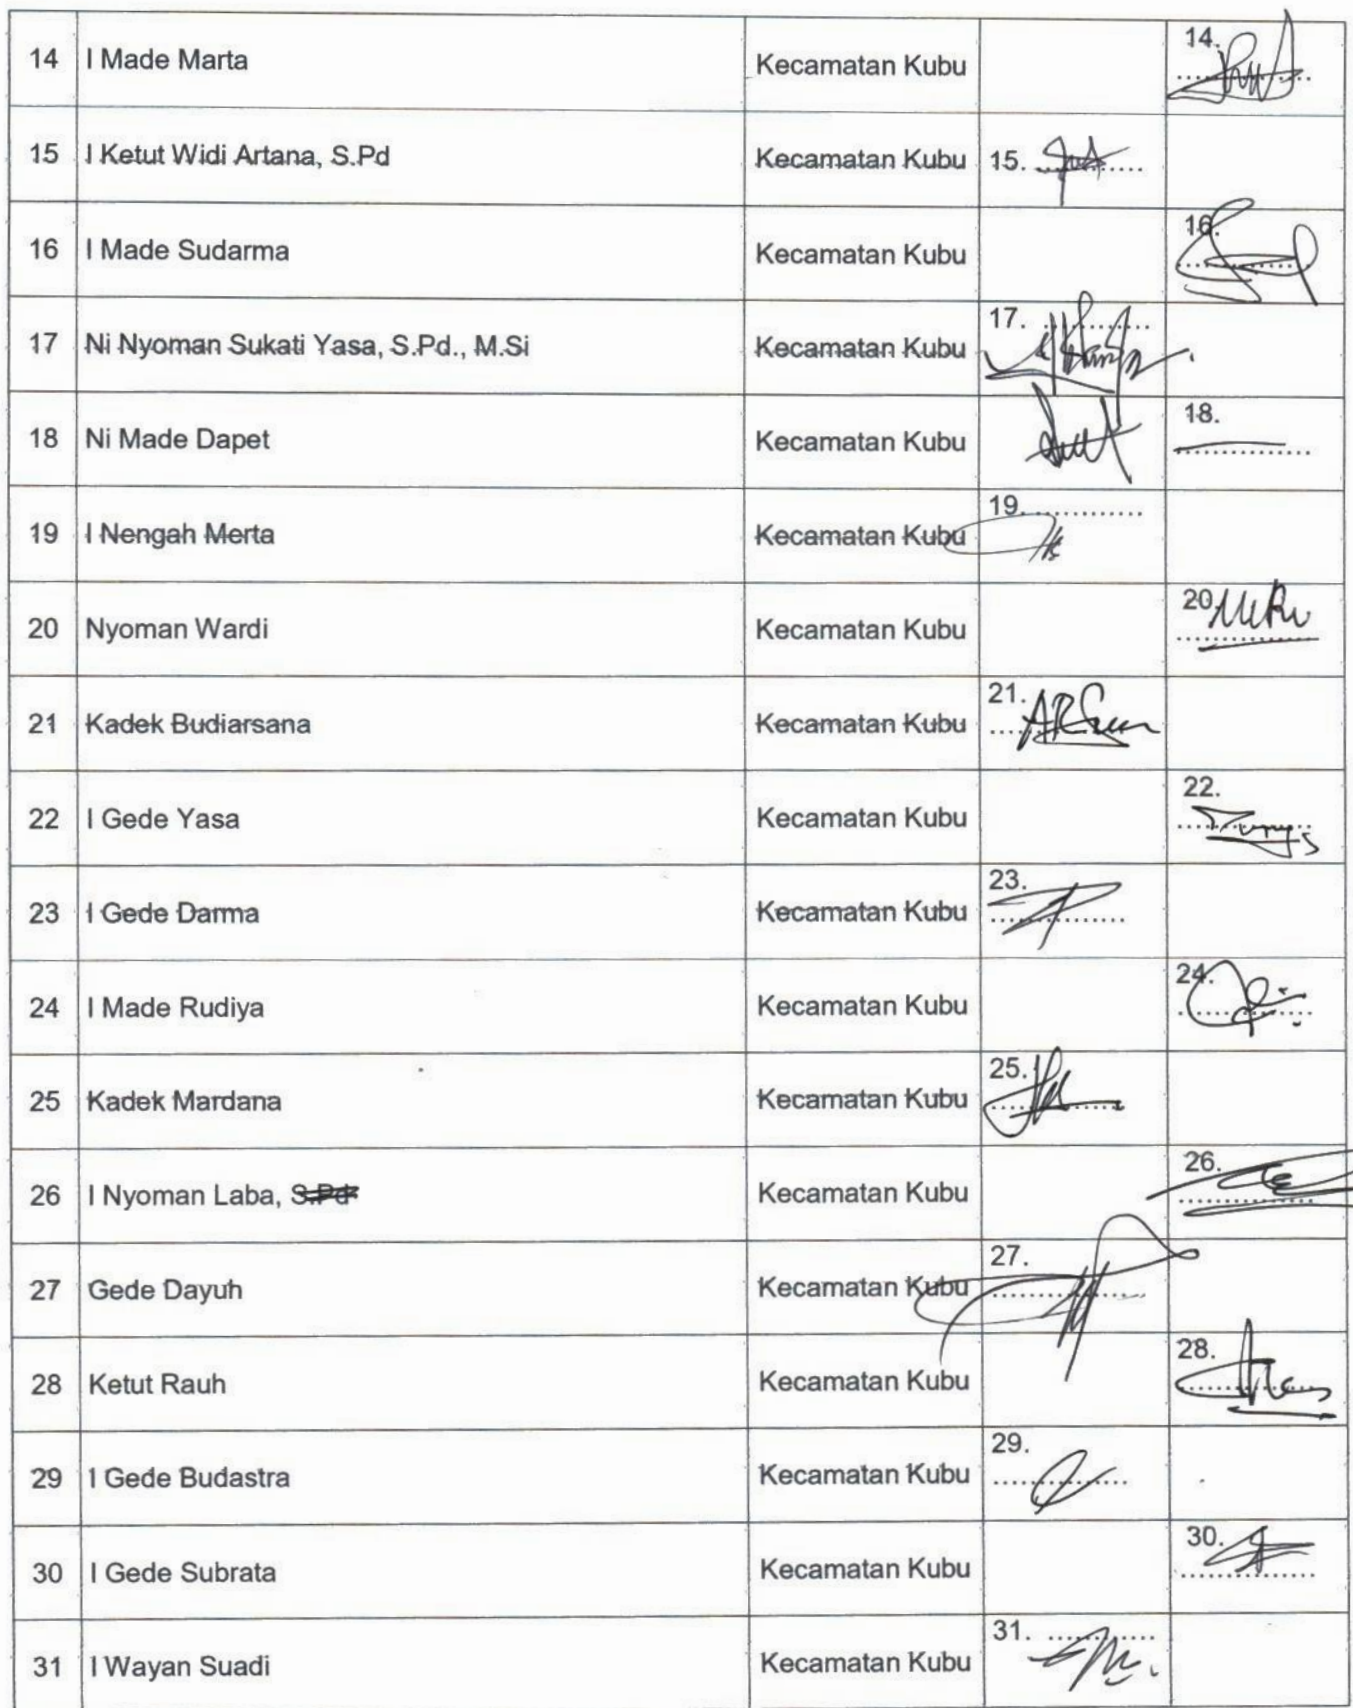 14 I Made Marta Kecamatan Kubu 14. ..........
15 I Ketut Widi Artana, S.Pd Kecamatan Kubu 15. ..........
16 I Made Sudarma Kecamatan Kubu 16. ..........
17 Ni Nyoman Sukati Yasa, S.Pd., M.Si Kecamatan Kubu 17. ..........
18 Ni Made Dapet Kecamatan Kubu 18. ..........
19 I Nengah Merta Kecamatan Kubu 19. ..........
20 Nyoman Wardi Kecamatan Kubu 20. ..........
21 Kadek Budiarsana Kecamatan Kubu 21. ..........
22 I Gede Yasa Kecamatan Kubu 22. ..........
23 I Gede Darma Kecamatan Kubu 23. ..........
24 I Made Rudiya Kecamatan Kubu 24. ..........
25 Kadek Mardana Kecamatan Kubu 25. ..........
26 I Nyoman Laba, S.Pd Kecamatan Kubu 26. ..........
27 Gede Dayuh Kecamatan Kubu 27. ..........
28 Ketut Rauh Kecamatan Kubu 28. ..........
29 I Gede Budastra Kecamatan Kubu 29. ..........
30 I Gede Subrata Kecamatan Kubu 30. ..........
31 I Wayan Suadi Kecamatan Kubu 31. ..........